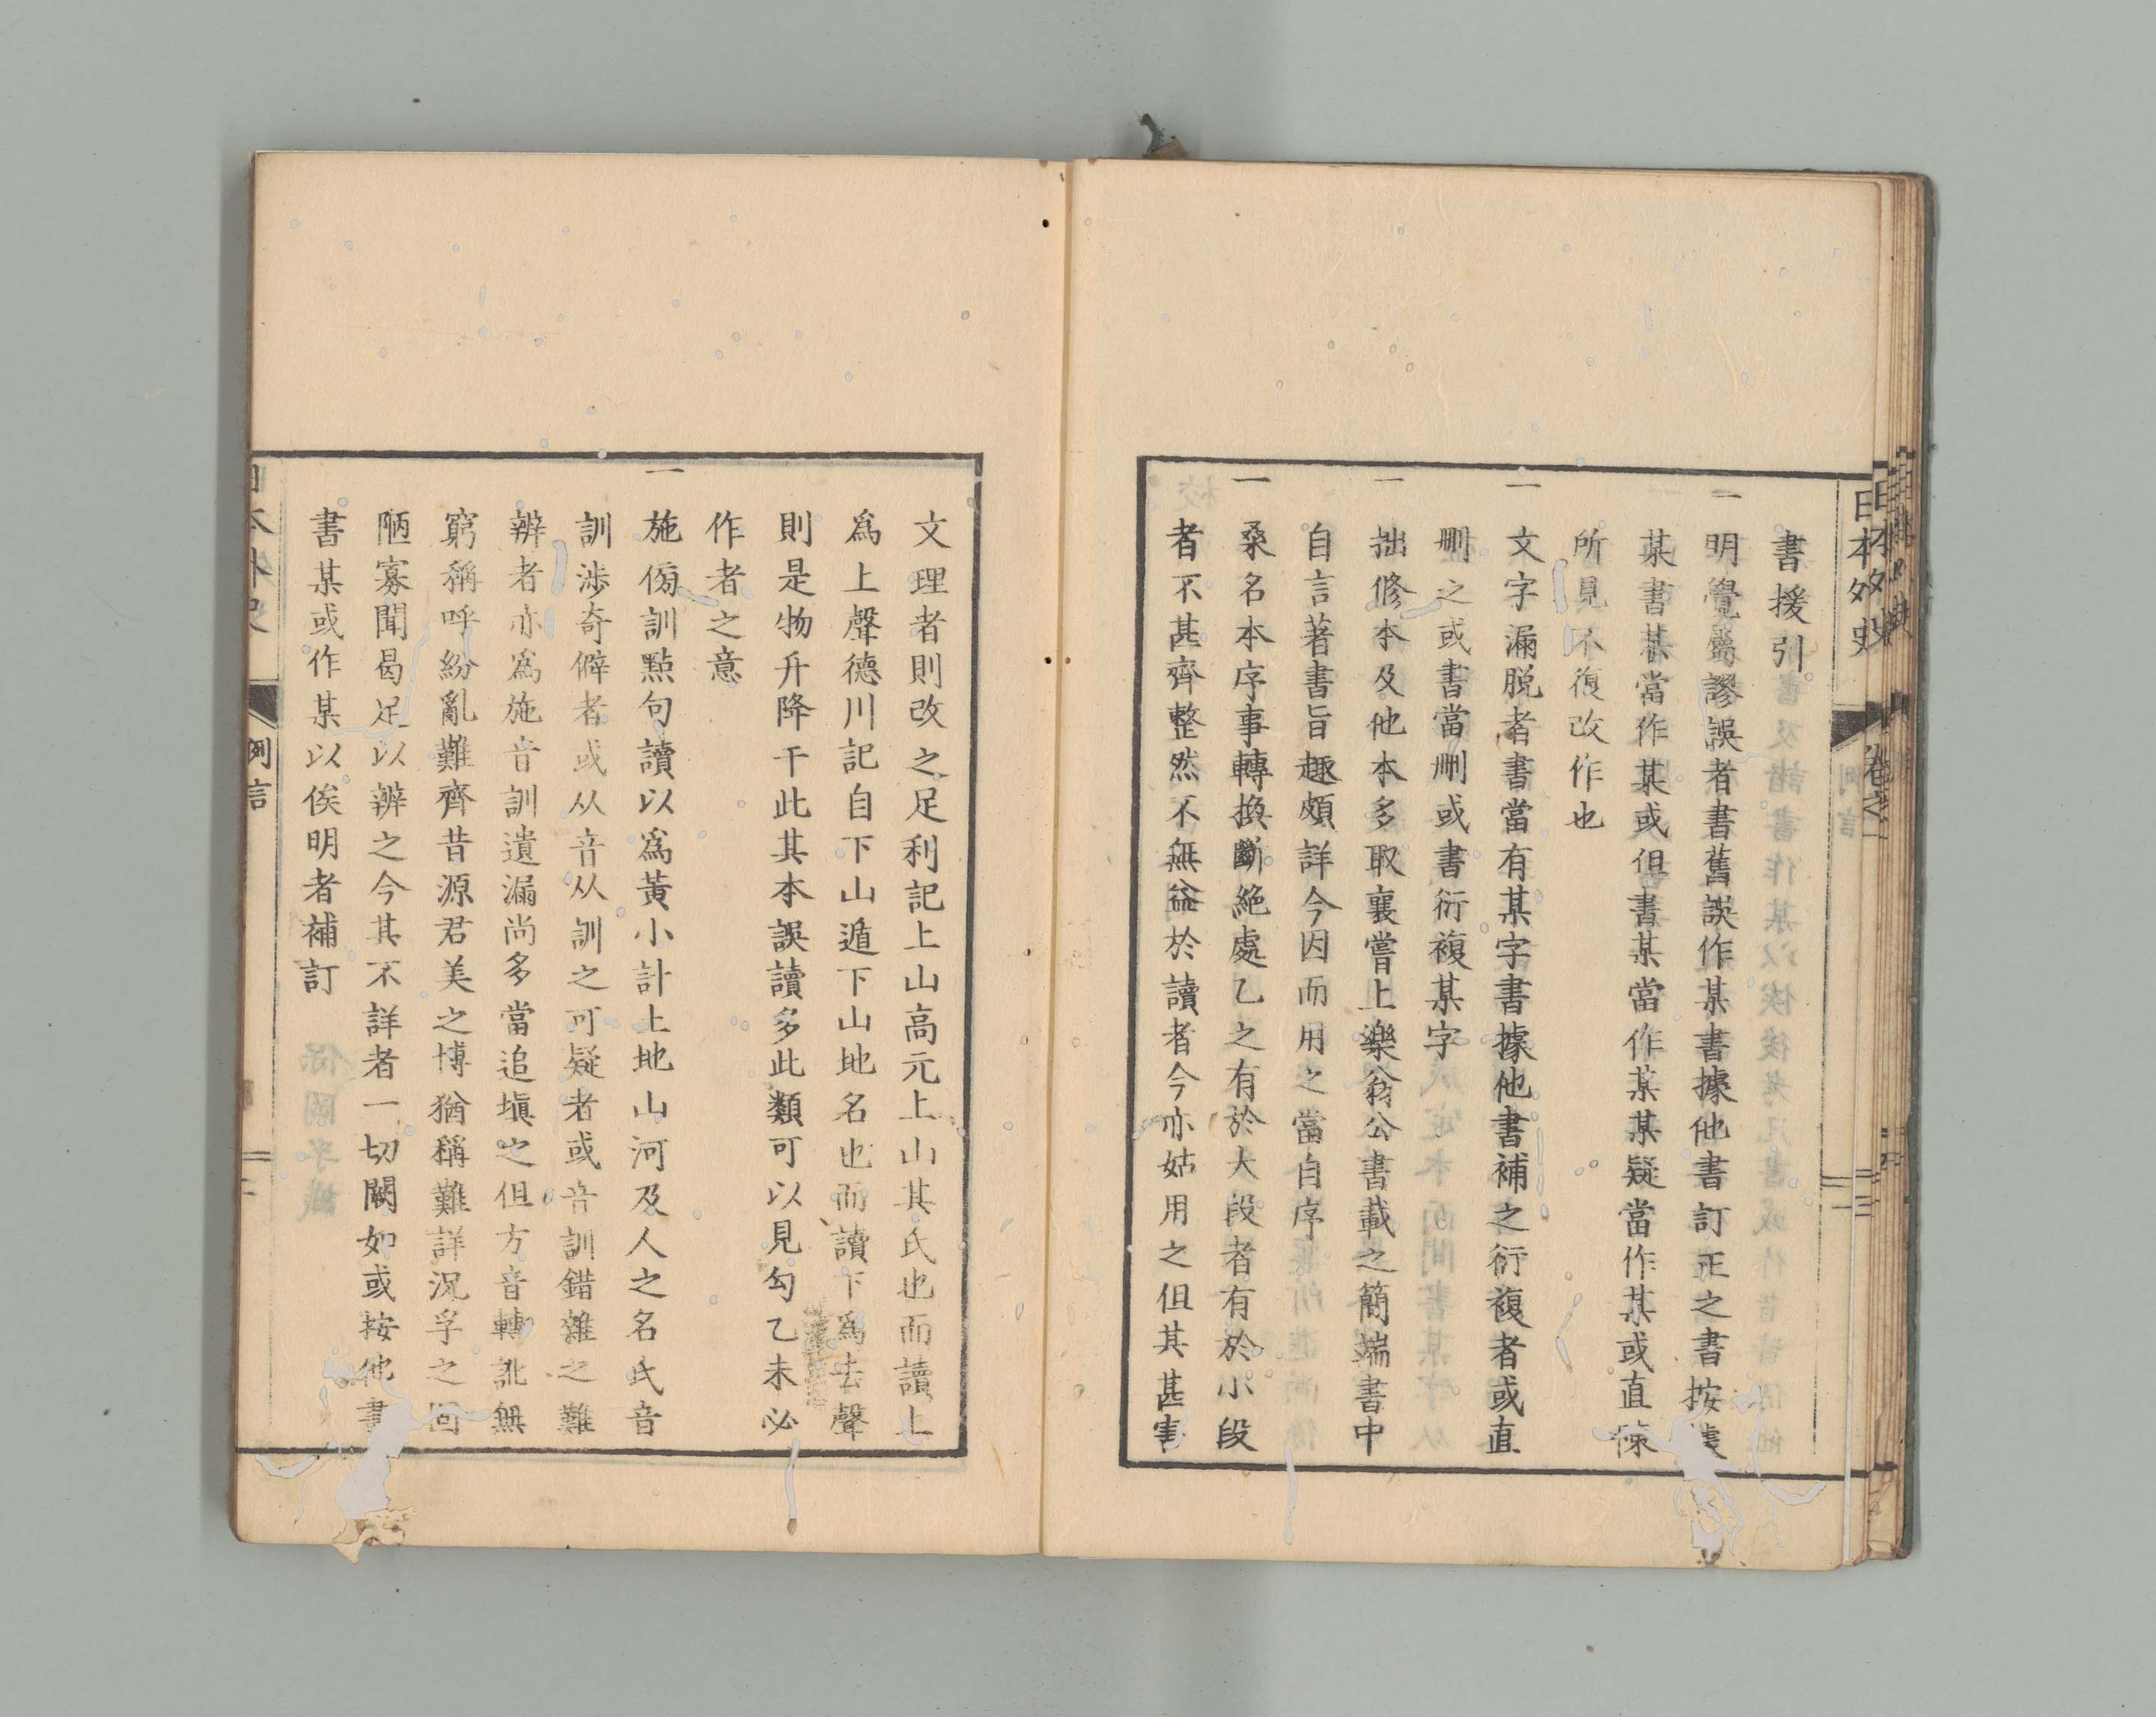 日本外史
書援引
一明覺屬謬誤者書舊誤作某書據他書訂正之書按
某書某當作某或但書某當作某某疑當作某或直
所見不復改作也
一文字漏脱者書當有某字書據他書補之衍複者或直
刪之或書當刪或書衍複某字
一拙修本及他本多取襄嘗上樂翁公書載之簡端書中
自言著書旨趣頗詳今因而用之當自序
一桑名本序事轉換斷絶處乙之有於大段者有於小段
者不甚齊整然不無益於讀者今亦姑用之但其甚害
文理者則改之足利記上山高元上山其氏也而讀上
爲上聲德川記自下山遁下山地名也而讀下爲去聲
則是物升降干此其本誤讀多此類可以見勾乙未必
作者之意
一施傍訓點句讀以爲黃小計上地山河及人之名氏音
訓涉奇僻者或从音从訓之可疑者或音訓錯雜之難
辨者亦爲施音訓遺漏尚多當追塡之但方音轉訛無
窮稱呼紛亂難齊昔源君美之博猶稱難詳況孚之固
陋寡聞曷足以辨之今其不詳者一切闕如或按他書
書某或作某以俟明者補訂
例言